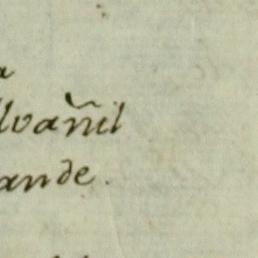 a
lvañil
ande.